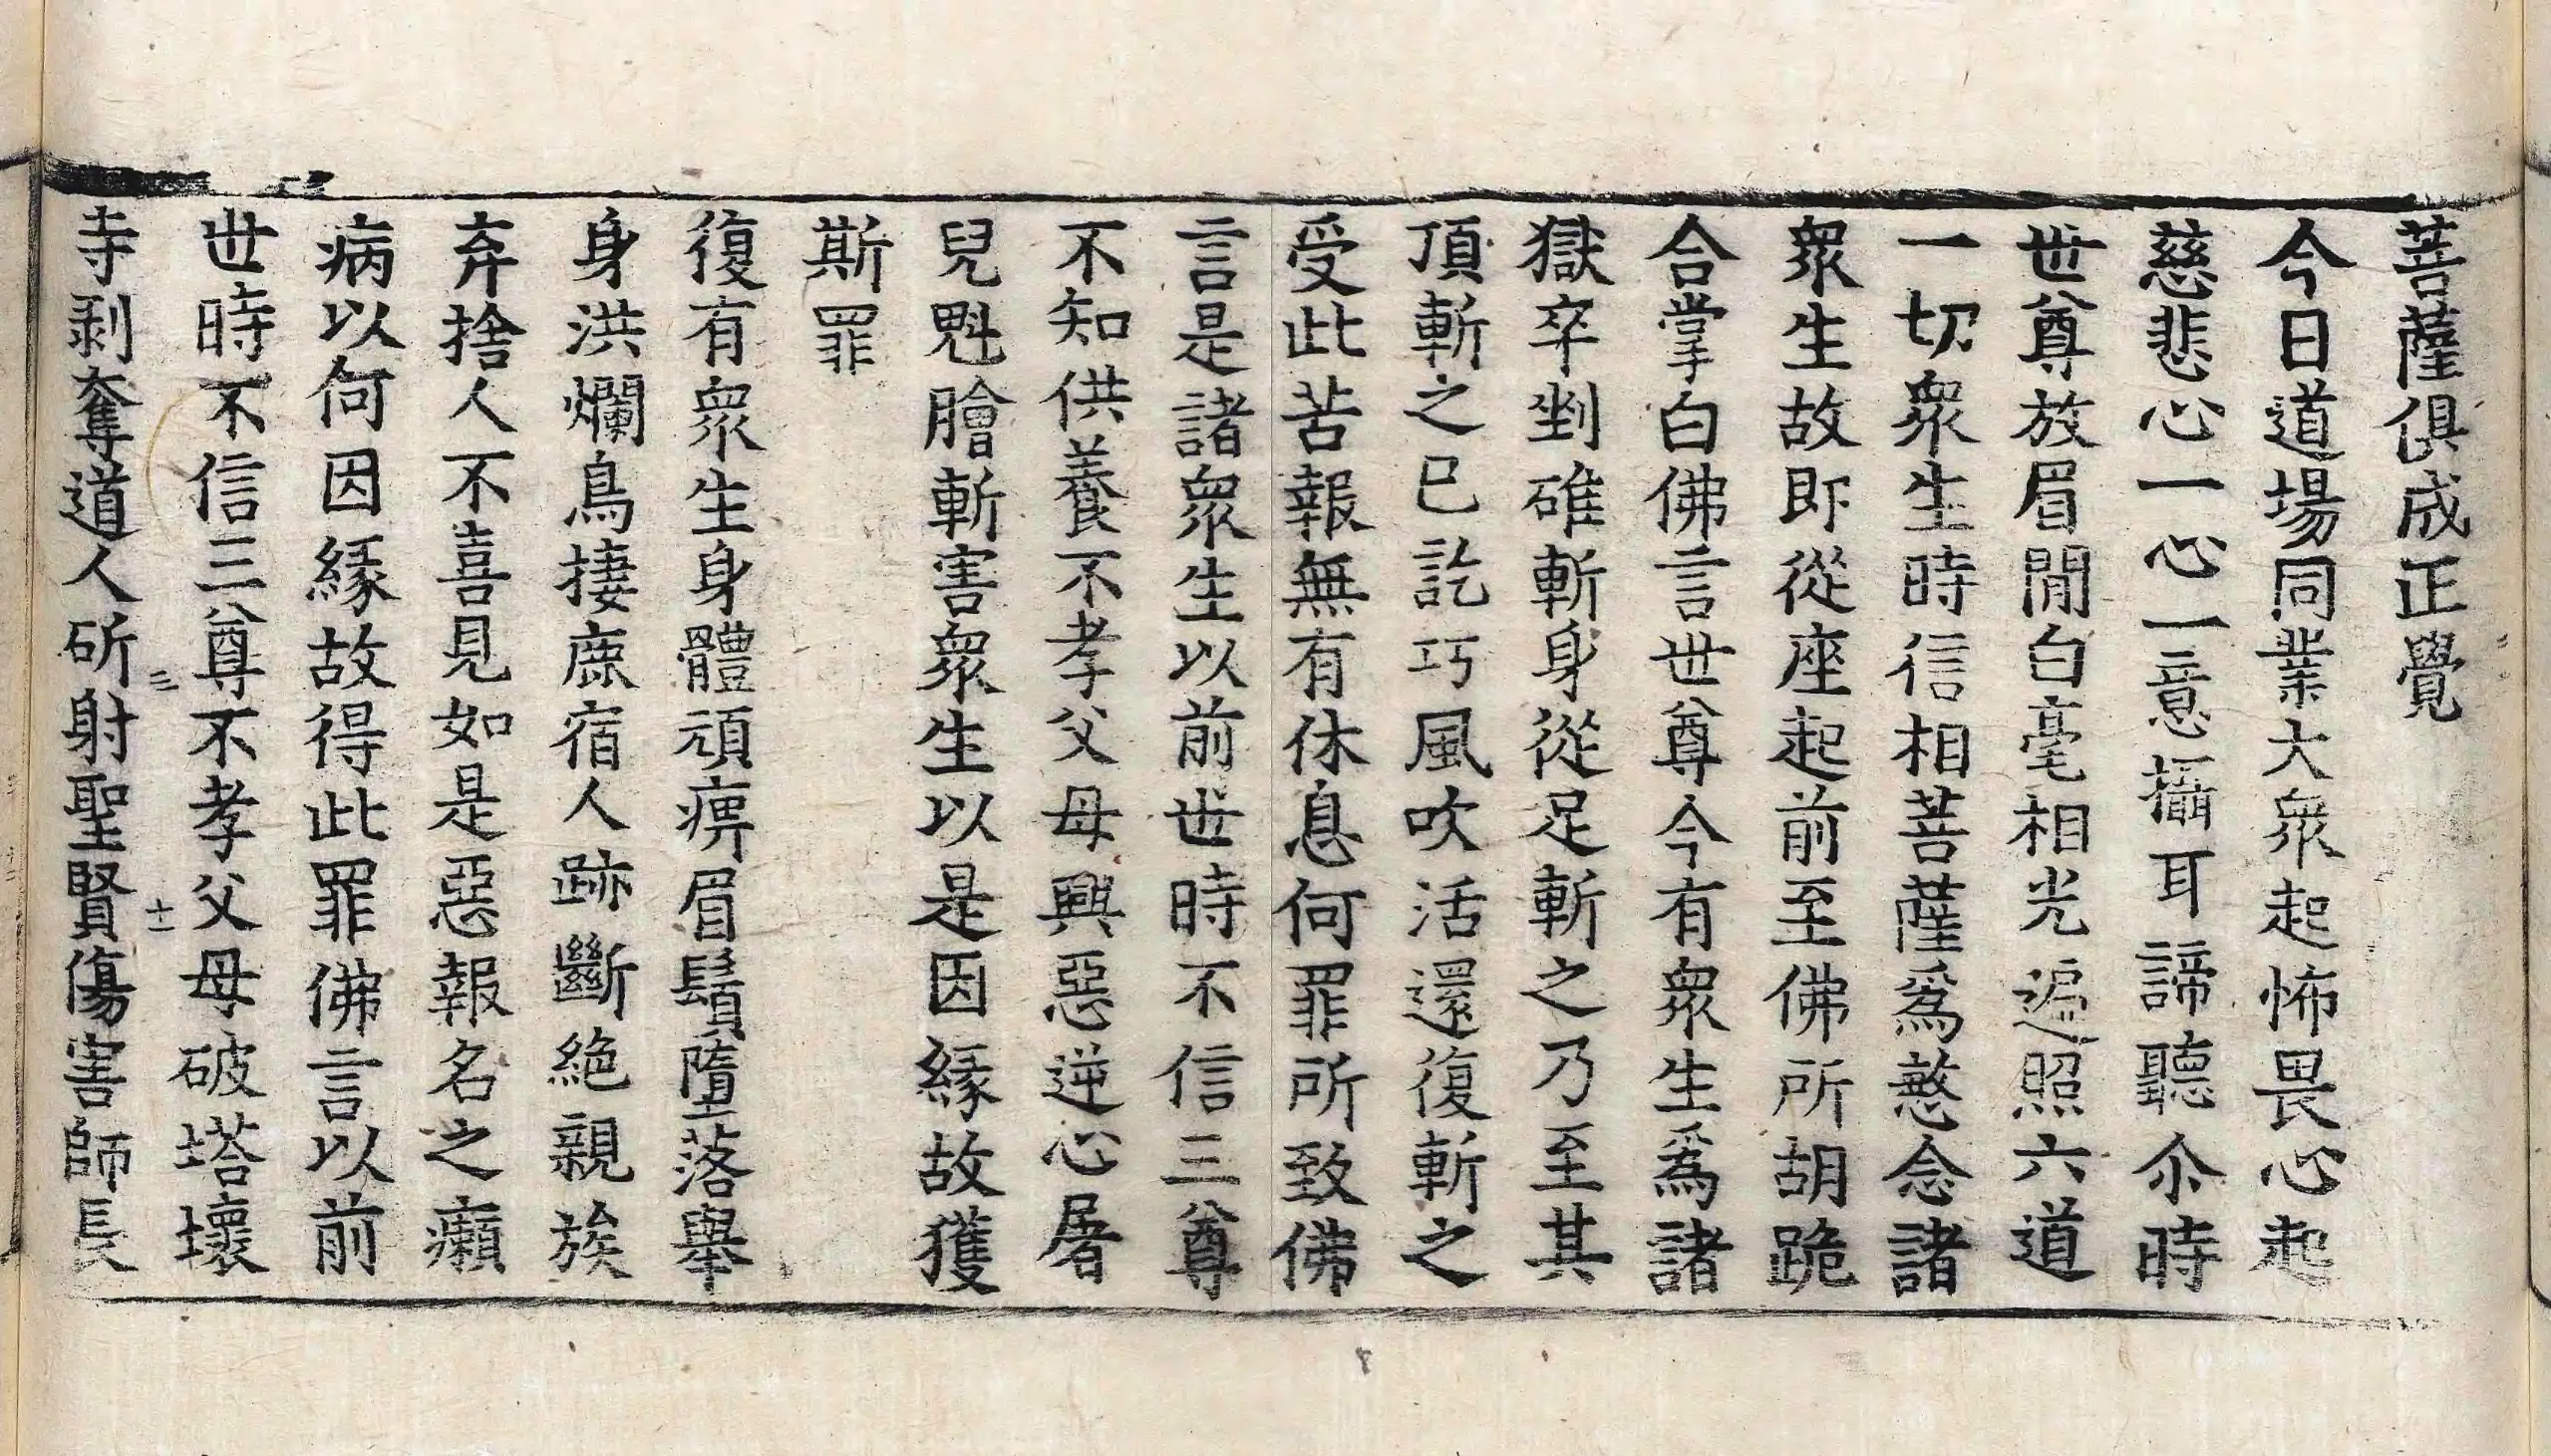 菩薩俱成正覺
今日道場同業大衆起怖畏心起
慈悲心一心一意攝耳諦聽尒時
世尊放眉閒白毫相光遍照六道
一切衆生時信相菩薩爲慜念諸
衆生故即從座起前至佛所胡跪
合掌白佛言世尊今有衆生爲諸
獄卒剉碓斬身從足斬之乃至其
頂斬之已訖巧風吹活還復斬之
受此苦報無有休息何罪所致佛
言是諸衆生以前世時不信三尊
不知供養不孝父母興惡逆心屠
兒魁膾斬害衆生以是因緣故獲
斯罪
復有衆生身體頑痹眉鬚墮落舉
身洪爛鳥捿鹿宿人跡斷絕親族
弃捨人不喜見如是惡報名之癩
病以何因緣故得此罪佛言以前
世時不信三尊不孝父母破塔壞
寺剥奪道人斫射聖賢傷害師長
三
十二